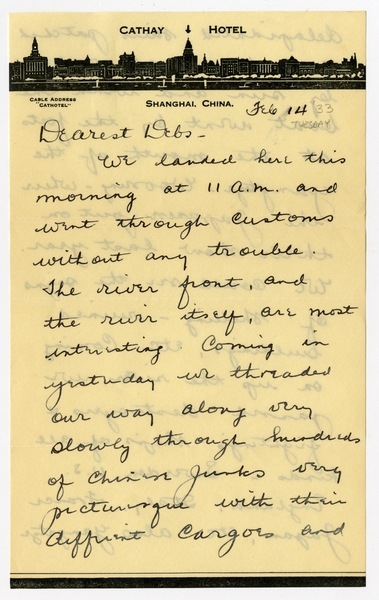 CATHAY HOTEL
CABLE ADDRESS
"CATHOTEL"
SHANGHAI, CHINA.
Feb 14 33
TUESDAY
Dearest Debs -
We landed here this
morning at 11 A.M. and
went through customs
without any trouble.
The river front, and
the river itself, are most
interesting. Coming in
yesterday we threaded
our way along very
slowly through hundreds
of Chinese Junks very
picturesque with their
different cargoes and